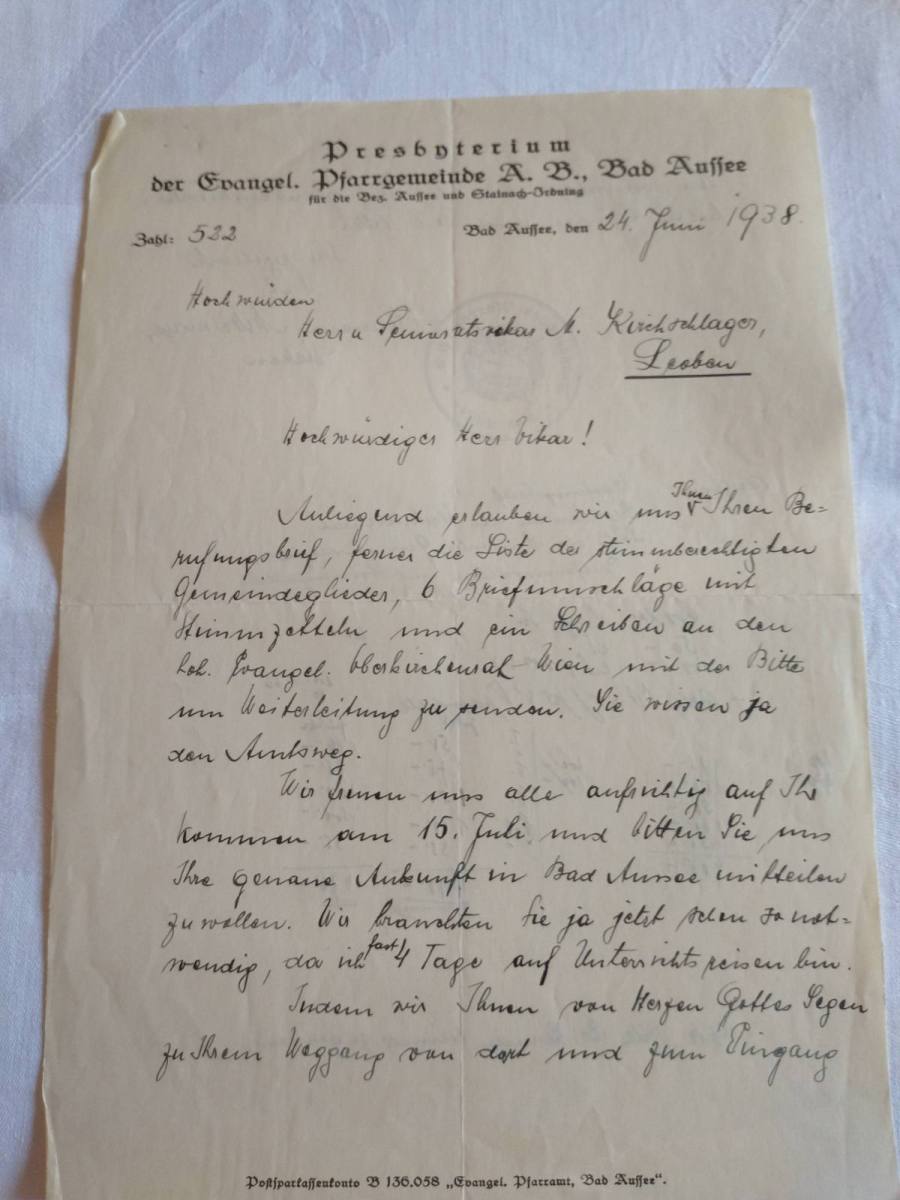 Presbyterium
der Evangel. Pfarrgemeinde A. B., Bad Aussee
für die Bez. Aussee und Stainach-Irdning
Zahl: 522
Bad Aussee, den 24. Juni 1938.
Hochwürden
Herrn M. Kirchschlager,
Leoben
Hochwürdiger Herr Vikar!
Anliegend erlauben wir uns Ihnen Ihren Be=
rufungsbrief, ferner die Liste der stimmberechtigten
Gemeindeglieder, 6 Briefumschläge mit
Stimmzetteln und ein Schreiben an den
hoh. Evangel. Oberkirchenrat Wien mit der Bitte
um Weiterleitung zu senden. Sie wissen ja
den Amtsweg.
Wir freuen uns alle aufrichtig auf Ihr
kommen am 15. Juli und bitten Sie uns
Ihre genaue Ankunft in Bad Aussee mitteilen
zu wollen. Wir brauchten Sie ja jetzt schon so not=
wendig, da ich fast 4 Tage auf Unterrichtsreisen bin.
Indem wir Ihnen von Herzen Gottes Segen
zu Ihrem Weggang von dort und zum Eingang
Postsparkassenkonto B 136.058 „Evangel. Pfarramt, Bad Aussee“.